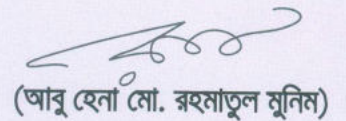 (আবু হেনা মো. রহমাতুল মুনিম)